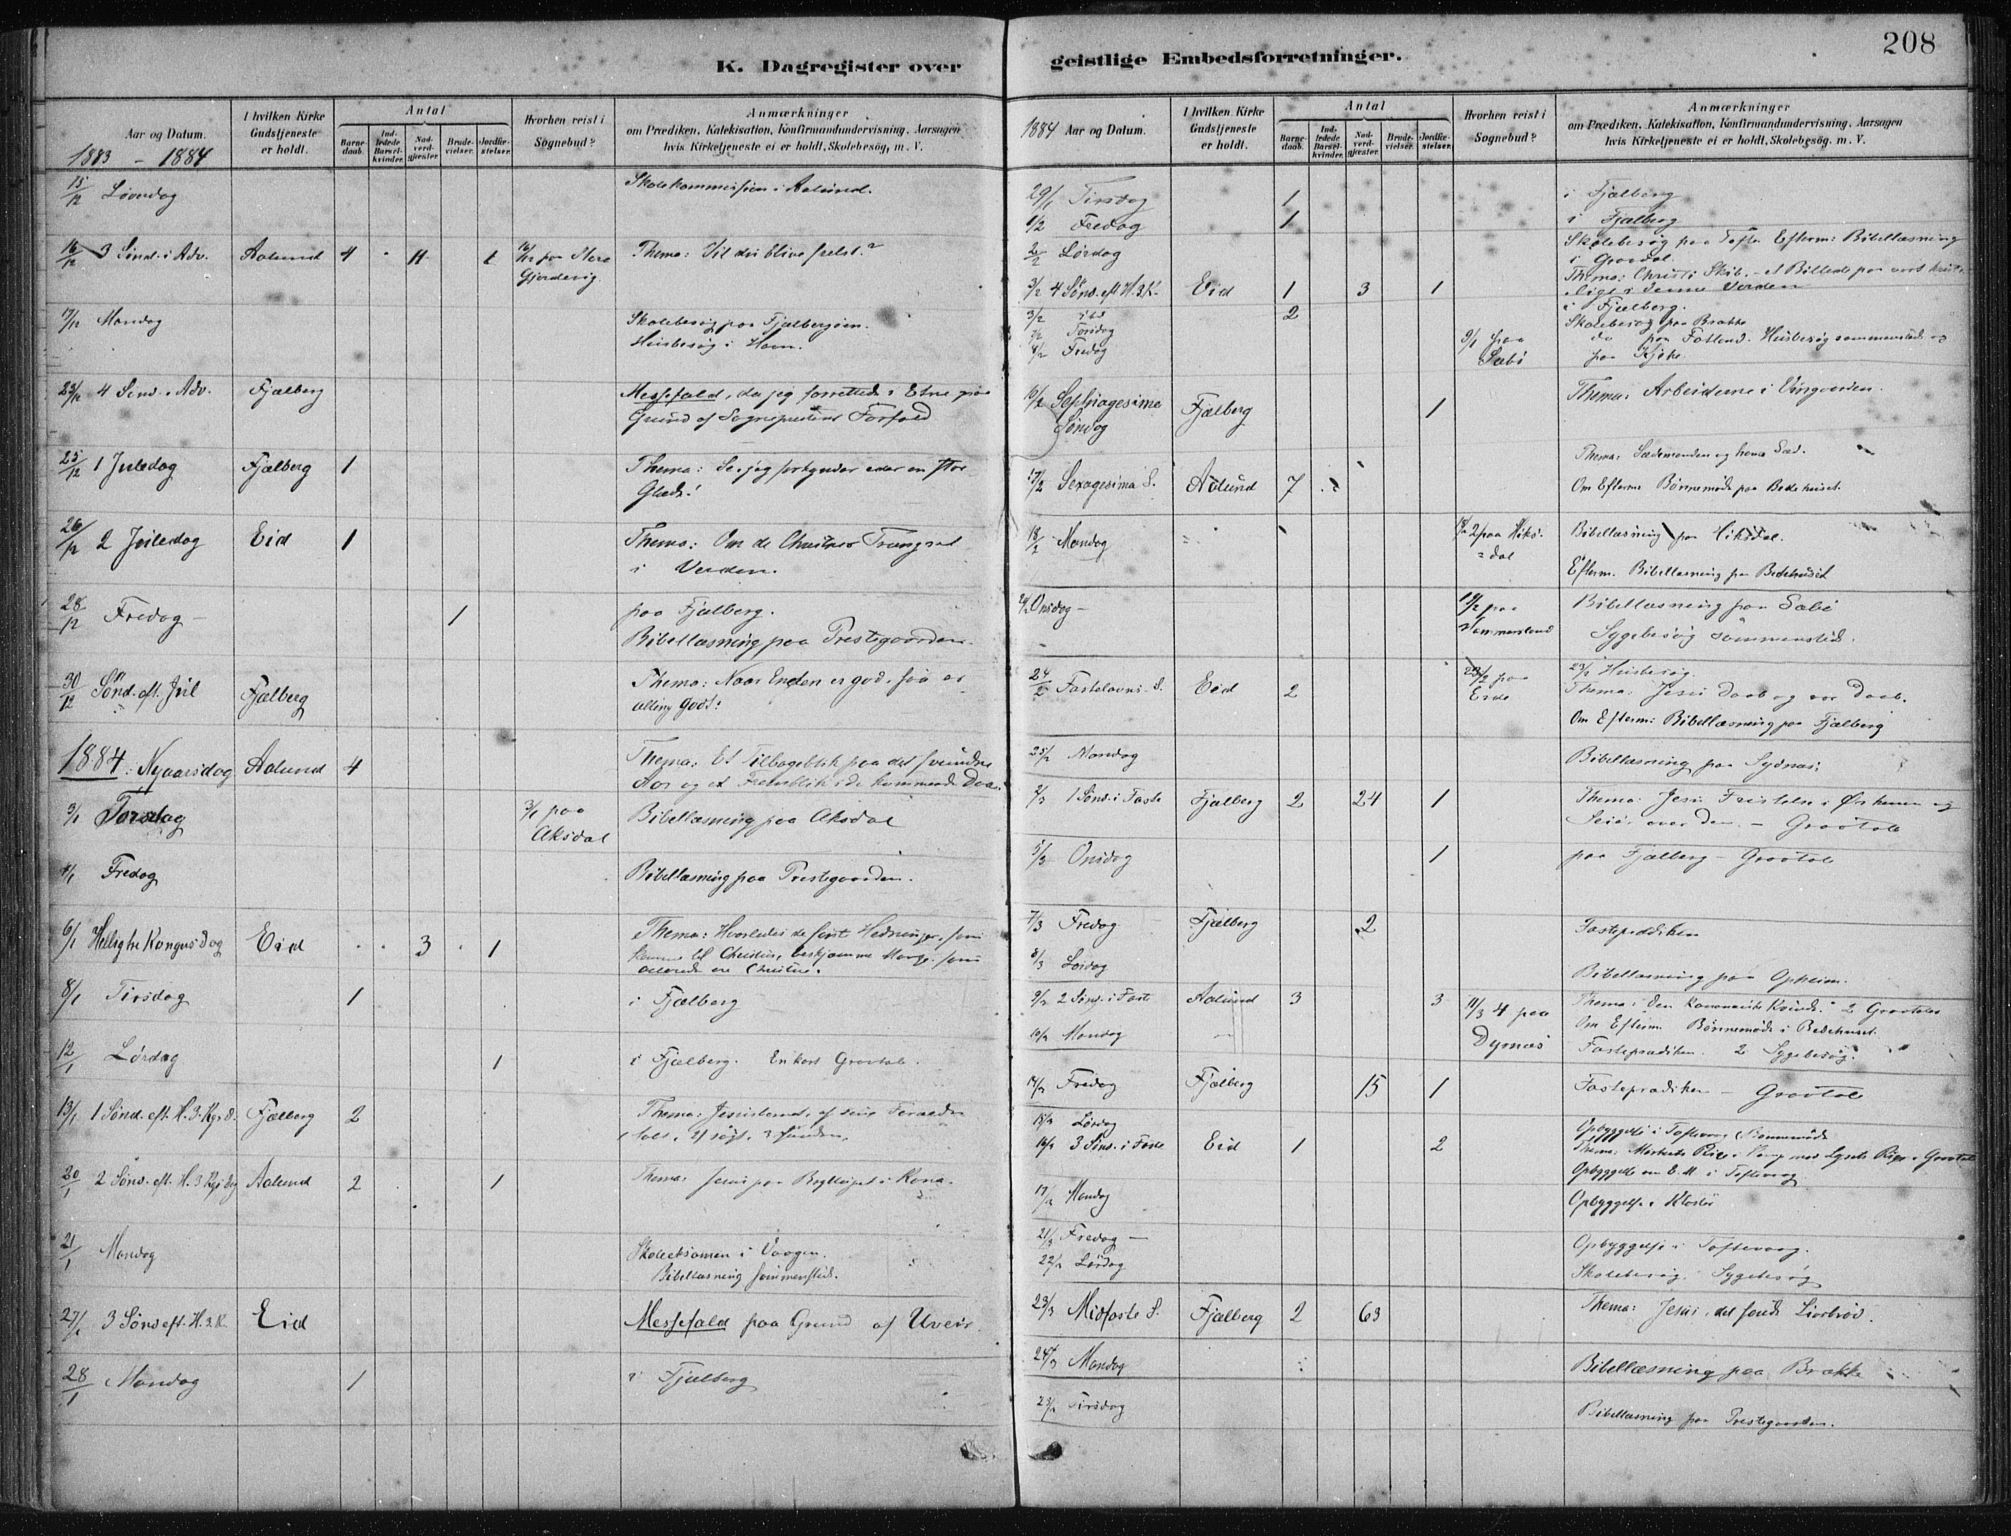 K. Dagregister over
Aar og Datum.
1883 - 1884
I hvilken Kirke
Gudstjeneste
er holdt.
Antal
Barne-
daab.
Ind-
ledede
Barsel-
kvinder.
Nad-
verd-
gjæster.
Brude-
vielser.
Jordfæ-
stelser.
Hvorhen reist i
Sognebud?
Anmærkninger
om Prædiken, Katekisation, Konfirmandundervisning, Aarsagen
hvis Kirketjeneste ei er holdt, Skolebesøg, m. V.
15/12 Løverdag Skolekommission i Aolund.
16/12 3 Sønd. i Adv. Aolund 4 11 1 Thema: Vil du blive frelst?
17/12 Mandag Skolebesøg paa Fjælbergøen.
Husbesøg i Havn.
23/12 4 Sønd. i Adv. Fjælberg Messefald, da jeg forrettede i Etne paa
Grund af Sognepræstens Forfald
25/12 1 Juledag Fjælberg 1 Thema: Se jeg forkynder eder en stor
Glæde!
26/12 2 Juledag Eid 1 Thema: Om de Christnes Trængsel
i Verden.
28/12 Fredag 1 paa Fjælberg.
Bibellæsning paa Prestegaarden.
30/12 Sønd. eft. Jul Fjælberg Thema: Naar Enden er god, saa er
alting godt!
1884: Nyaarsdag Aolund 4 Thema: Et Tilbageblik paa det svundne
Aar og et Fremblik i de kommende Dage.
3/1 Torsdag 3/1 paa
Aksdal Bibellæsning paa Aksdal
4/1 Fredag Bibellæsning paa Prestegaarden.
6/1 Hellig tre Kongers Dag Eid 3 1 Thema: Hvorledes de Hedninger, som
komme til Christus, beskjæmme Mange, som
allerede ere Christne.
8/1 Tirsdag 1 i Fjælberg
12/1 Lørdag 1 i Fjælberg. En kort Gravtale.
13/1 1 Sønd. eft. H. 3. Kgrs D. Fjælberg 2 Thema: Jesusbarnet, af sine Forældre
tabt, 2) søgt, 3 funden.
20/1 2 Sønd. eft. H. 3 Kgrs Dag Aolund 2 1 Thema: Jesus paa Bryllupet i Kana.
21/1 Mandag Skoleeksamen i Vaagen.
Bibellæsning sammesteds.
27/1 3 Sønd eft. H. 3. K. Eid Messefald paa Grund af Uveir.
28/1 Mandag 1 i Fjælberg
geistlige Embedsforretninger.
208
1884 Aar og Datum.
I hvilken Kirke
Gudstjeneste
er holdt.
Antal
Barne-
daab.
Ind-
ledede
Barsel-
kvinder.
Nad-
verd-
gjæster.
Brude-
vielser.
Jordfæ-
stelser.
Hvorhen reist i
Sognebud?
Anmærkninger
om Prædiken, Katekisation, Konfirmandundervisning, Aarsagen
hvis Kirketjeneste ei er holdt, Skolebesøg, m. V.
29/1 Tirsdag 1 i Fjælberg
1/2 Fredag 1 i Fjælberg
2/2 Lørdag Skolebesøg paa Tofte Efterm: Bibellæsning
i Gravdal.
3/2 4 Sønd. eft H. 3. K. Eid 1 3 1 Thema: Christi Skib. - et Billede paa vort
i denne Verden
3/2 2 i Fjælberg.
7/2 Torsdag Skolebesøg paa Brække
8/2 Fredag 9/1 paa
Sæbø do paa Fatland. Husbesøg sammesteds og
10/2 Septuagesima
Søndag Fjælberg 1 Thema: Arbeiderne i Vingaarden.
17/2 Sexagesima S. Aolund 7 Thema: Sædemanden og hans Sæd.
Om Efterm Børnemøde paa Bedehuset.
18/2 Mandag 18/2 2 paa Høks-
dal Bibellæsning paa Høksdal.
Efterm. Bibellæsning paa Bedehuset
20/2 Onsdag - 19/2 paa Bibellæsning paa Sæbø
Sygebesøg sammesteds.
24/2 Fastelavns S. Eid 2 23/2 paa
Eide 23/2 Husbesøg.
Thema: Jesu Daab og vor Daab.
Om Efterm: Bibellæsning paa Fjælberg
25/2 Mandag Bibellæsning paa Sydnæs.
2/3 1 Sønd. i Faste Fjælberg 2 24 1 Thema: Jesu Fristelse i Ørkenen og
Seier over den. - Gravtale
5/3 Onsdag 1 paa Fjælberg - Gravtale
7/3 Fredag Fjælberg 2 Fasteprædiken
8/3 Lørdag Bibellæsning paa Opheim.
9/3 2 Sønd. i Faste Aolund 3 3 11/3 4 paa
Dymæs Thema: Den kananæiske Kvinde. 2 Gravtaler
Om Efterm Børnemøde i Bedehuset.
10/3 Mandag Fasteprædiken. 2 Sygebesøg.
14/3 Fredag Fjælberg 15 1 Fasteprædiken - Gravtale
15/3 Lørdag Opbyggelse i Toftevaag Børnemøde
16/3 3 Sønd. i Faste Eid 1 2 Thema: Mørkets Rige i Kamp med Lysets Rige. Gravtale
Opbyggelse om E. M. i Toftevaag
17/3 Mandag Opbyggelse i Kloster
21/3 Fredag - Opbyggelse i Toftevaag.
22/3 Lørdag Skolebesøg. Sygebesøg
23/3 Midfaste S. Fjælberg 2 63 Thema: Jesus, det sande Livsbrød.
24/3 Mandag Bibellæsning paa Brække
25/3 Tirsdag Bibellæsning paa Prestegaarden.